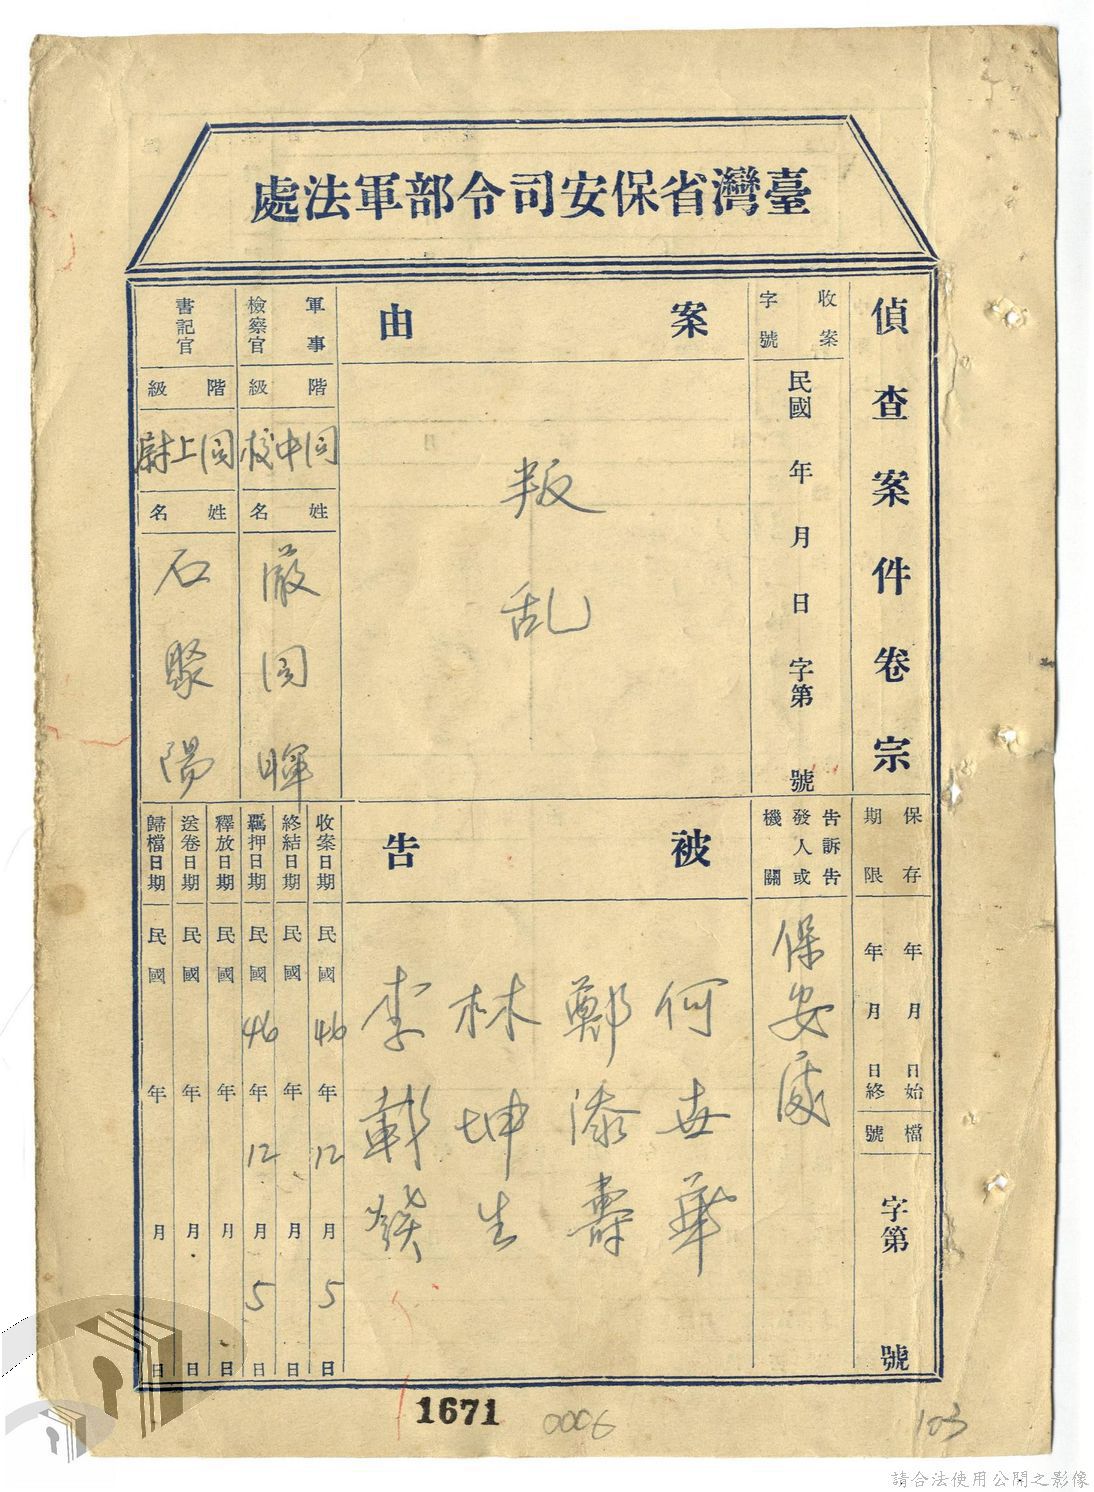 臺灣省保安司令部軍法處
偵查案件卷宗
保存期限
年月日始
年月日終
檔號
字第號
收案字號
民國年月日字第號
告訴告發人或機關
保安處
案由
叛乱
被告
何世華
鄭添壽
林坤生
李彰發
軍事檢察官
階級
同中校
姓名
嚴同暉
書記官
階級
同上尉
姓名
石聚陽
收案日期民國46年12月5日
終結日期民國年月日
羈押日期民國46年12月5日
釋放日期民國年月日
送卷日期民國年月日
歸檔日期民國年月日
1671
0006
103
請合法使用公開之影像